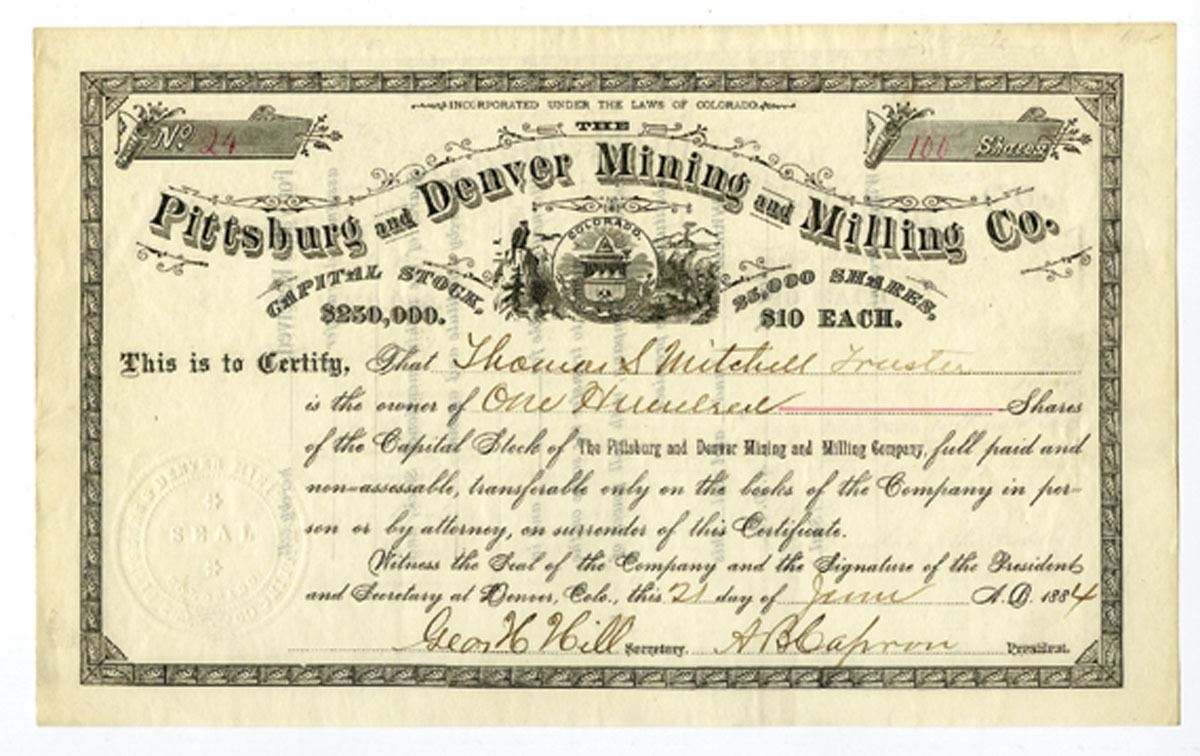 INCORPORATED UNDER THE LAWS OF COLORADO.
No. 24
100 Shares
THE
Pittsburg and Denver Mining and Milling Co.
COLORADO.
CAPITAL STOCK, $250,000.
25,000 SHARES, $10 EACH.
This is to Certify, That Thomas S Mitchell Trustee
is the owner of One Hundred Shares
of the Capital Stock of The Pittsburg and Denver Mining and Milling Company, full paid and
non-assessable, transferable only on the books of the Company in per-
son or by attorney, on surrender of this Certificate.
Witness the Seal of the Company and the Signature of the President
and Secretary at Denver, Colo., this 21 day of June A.D. 1884
Geo. H Hill Secretary. A B Capron President.
SEAL